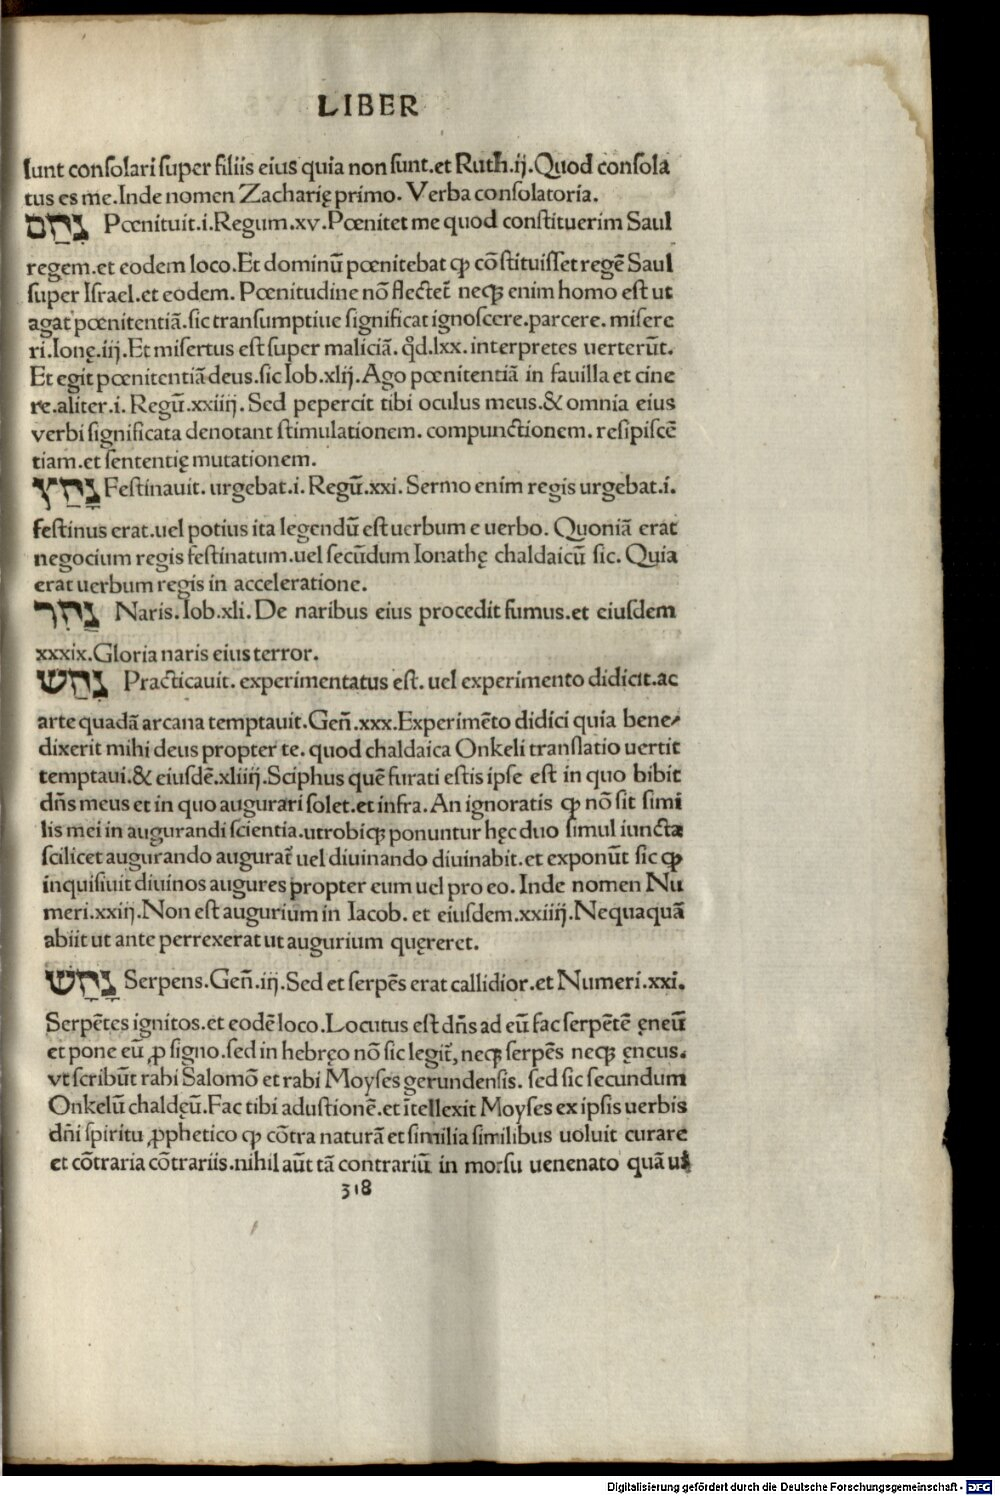 LIBER
lunt consolari super filiis eius quia non sunt.et Ruth.ij.Quod consola
tus es me.Inde nomen Zacharię primo. Verba consolatoria.
נִחַם Pœnituit.i.Regum.xv.Pœnitet me quod constituerim Saul
regem.et eodem loco.Et dominū pœnitebat ꝙ cōstituisset regē Saul
super Israel.et eodem. Pœnitudine nō flectet̃ neqꝫ enim homo est ut
agat pœnitentiā.sic transumptiue significat ignoscere.parcere. misere
ri.Ionę.iij.Et misertus est super maliciā. qd̄.lxx. interpretes uerterūt.
Et egit pœnitentiā deus.sic Iob.xlij.Ago pœnitentiā in fauilla et cine
re.aliter.i. Regū.xxiiij.Sed pepercit tibi oculus meus.& omnia eius
verbi significata denotant stimulationem. compunctionem. resipiscē
tiam.et sententię mutationem.
נָחַץ Festinauit. urgebat.i. Regū.xxi. Sermo enim regis urgebat.i.
festinus erat.uel potius ita legendū est uerbum e uerbo. Quoniā erat
negocium regis festinatum.uel secūdum Ionathę chaldaicū sic. Quia
erat uerbum regis in acceleratione.
נָחִר Naris.Iob.xli.De naribus eius procedit fumus.et eiusdem
xxxix.Gloria naris eius terror.
נִחַשׁ Practicauit. experimentatus est. uel experimento didicit.ac
arte quadā arcana temptauit.Geñ.xxx.Experimēto didici quia bene⸗
dixerit mihi deus propter te. quod chaldaica Onkeli translatio uertit
temptaui.& eiusdē.xliiij.Sciphus quē furati estis ipse est in quo bibit
dñs meus et in quo augurari solet.et infra.An ignoratis ꝙ nō sit simi
lis mei in augurandi scientia.utrobiqꝫ ponuntur hęc duo simul iuncta
scilicet augurando augurat̃ uel diuinando diuinabit.et exponūt sic ꝙ
inquisiuit diuinos augures propter eum uel pro eo. Inde nomen Nu
meri.xxiij.Non est augurium in Iacob. et eiusdem.xxiiij.Nequaquā
abiit ut ante perrexerat ut augurium quęreret.
נָחָשׁ Serpens.Geñ.iij.Sed et serpēs erat callidior.et Numeri.xxi.
Serpētes ignitos.et eodē loco.Locutus est dñs ad eū fac serpētē ęneū
et pone eū ꝓ signo.sed in hebręo nō sic legit̃, neqꝫ serpēs neqꝫ ęneus.
vt scribūt rabi Salomō et rabi Moyses gerundensis. sed sic secundum
Onkelū chaldęū.Fac tibi adustionē.et ītellexit Moyses ex ipsis uerbis
dñi spiritu ꝓphetico ꝙ cōtra naturā et similia similibus uoluit curare
et cōtraria cōtrariis.nihil aūt tā contrariū in morsu uenenato quā ui
318
Digitalisierung gefördert durch die Deutsche Forschungsgemeinschaft - DFG